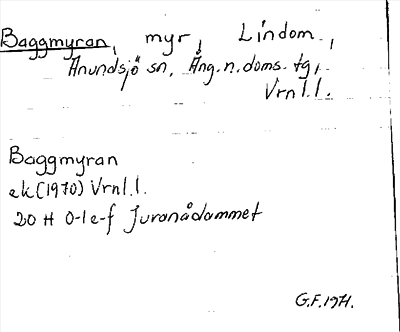 Baggmyran, myr, Lindom.,
Anundsjö sn, Ång.n.doms.tg,
Vrnl.l.
Baggmyran
ek(1970) Vrnl.l.
20 H 0-1 e-f Juranådammet
G.F. 1971.